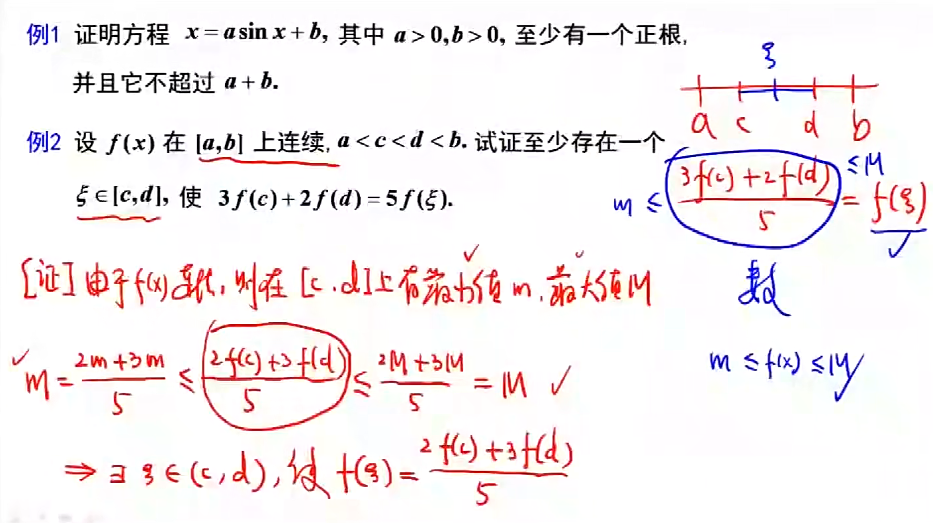 例1 证明方程 x = a sin x + b, 其中 a > 0, b > 0, 至少有一个正根,
并且它不超过 a + b.
ξ
a c d b
例2 设 f(x) 在 [a,b] 上连续, a < c < d < b. 试证至少存在一个
ξ ∈ [c,d], 使 3f(c) + 2f(d) = 5f(ξ).
m ≤ (3f(c) + 2f(d))/5 ≤ M = f(ξ) ✓
数
[证] 由于 f(x) 连续, 则在 [c, d] 上有最小值 m, 最大值 M
✓ m = (2m + 3m)/5 ≤ (2f(c) + 3f(d))/5 ≤ (2M + 3M)/5 = M ✓
m ≤ f(x) ≤ M ✓
⇒ ∃ ξ ∈ (c, d), 使 f(ξ) = (2f(c) + 3f(d))/5